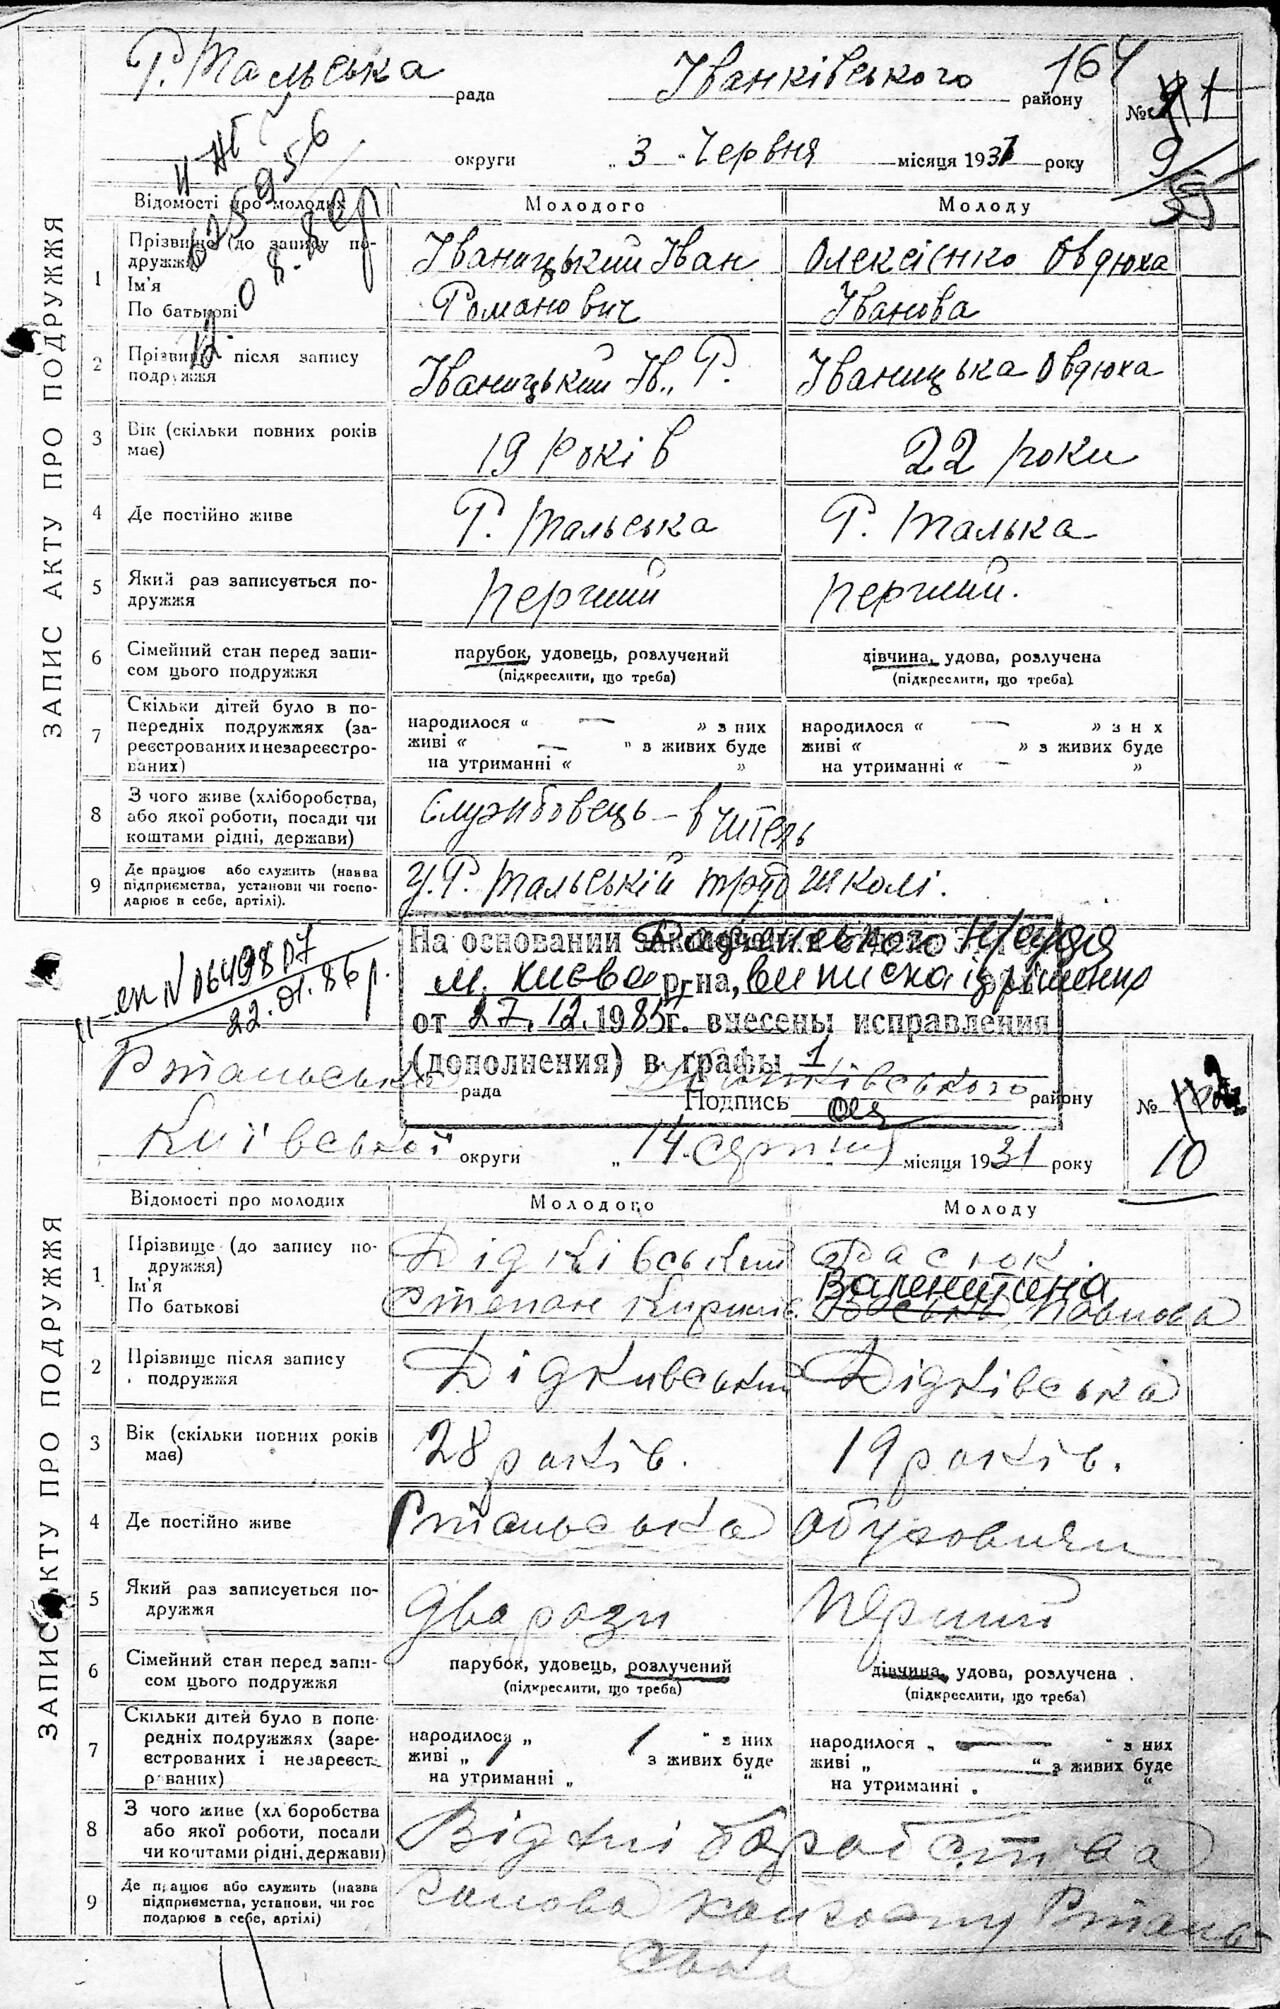 Р. Тальська рада Іванківського району 164
№ 1
округи „ 3 „ Червня місяця 1931 року 9
Відомості про молодих Молодого Молоду
ЗАПИС АКТУ ПРО ПОДРУЖЖЯ
1 Прізвище (до запису подружжя) Ім'я По батькові
Іваницький Іван Романович
Олексієнко Овдюха Іванова
2 Прізвище після запису подружжя
Іваницький Ів., Р.
Іваницька Овдюха
3 Вік (скільки повних років має)
19 років
22 роки
4 Де постійно живе
Р. Тальська
Р. Талька
5 Який раз записується подружжя
перший
перший.
6 Сімейний стан перед записом цього подружжя
парубок, удовець, розлучений
(підкреслити, що треба)
дівчина, удова, розлучена
(підкреслити, що треба)
7 Скільки дітей було в попередніх подружжях (зареєстрованих и незареєстрованих)
народилося « — » з них
живі « — " з живих буде
на утриманні « »
народилося « — » з н х
живі « » з живих буде
на утриманні « — »
8 З чого живе (хліборобства, або якої роботи, посади чи коштами рідні, держави)
Службовець – вчитель
9 Де працює або служить (назва підприємства, установи чи господарює в себе, артілі).
У. Р. Тальській труд школі.
22.01.86 р.
На основании
м. Києва р-на, виписка із рішення
от 27.12.1985г. внесены исправления
(дополнения) в графы 1
Подпись
Ртальська рада Іванківського району №
Київської округи „ 14 серпня місяця 1931 року 10
Відомості про молодих Молодого Молоду
ЗАПИС АКТУ ПРО ПОДРУЖЖЯ
1 Прізвище (до запису подружжя) Ім'я По батькові
Дідківський
Степан Кирилів.
Валентина
Павлова
2 Прізвище після запису подружжя
Дідкивський
Дідківська
3 Вік (скільки повних років має)
28 років.
19 років.
4 Де постійно живе
Ртальська
Обуховичи
5 Який раз записується подружжя
два рази
перший
6 Сімейний стан перед записом цього подружжя
парубок, удовець, розлучений
(підкреслити, що треба)
дівчина, удова, розлучена
(підкреслити, що треба)
7 Скільки дітей було в попередніх подружжях (зареєстрованих і незареєстрованих)
народилося „ 1 " з них
живі „ 1 з живих буде
на утриманні „ "
народилося „ — " з них
живі „ — " з живих буде
на утриманні „ "
8 З чого живе (хл боробства або якої роботи, посади чи коштами рідні, держави)
Від хліборобства
9 Де працює або служить (назва підприємства, установи, чи гос подарює в себе, артілі)
Голова колгоспу Рталь-
ська